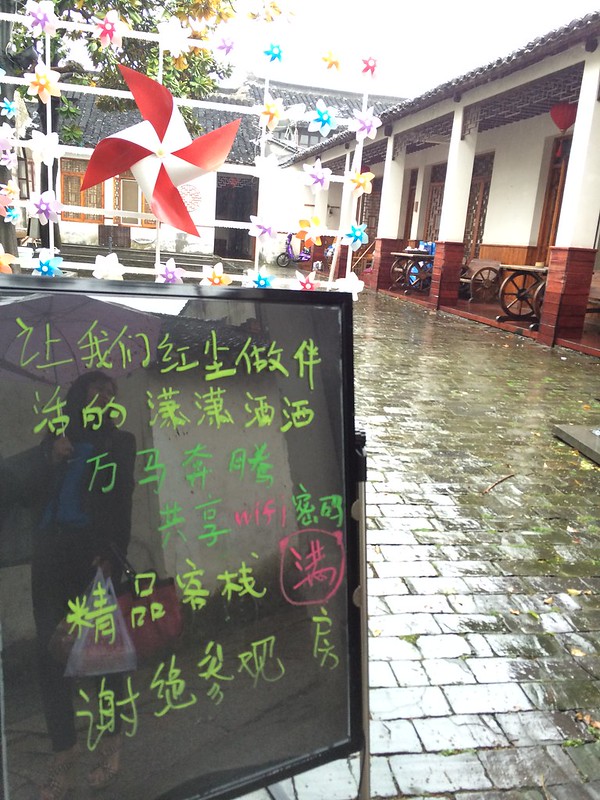 让我们红尘做伴
活的潇潇洒洒
万马奔腾
共享wifi密码
精品客栈 满房
谢绝参观